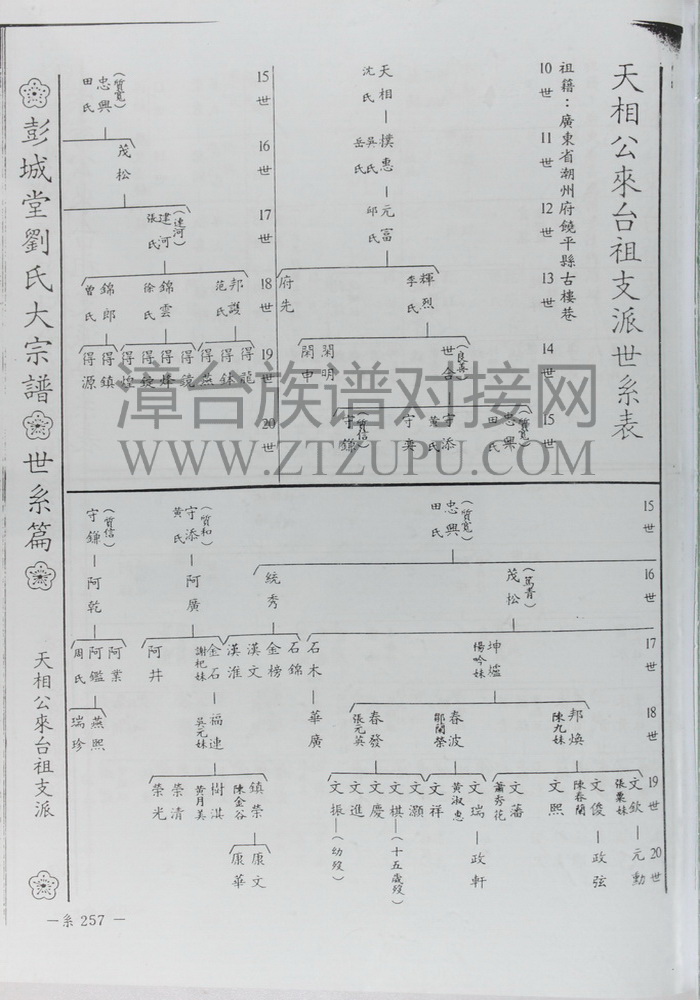 天相公來台祖支派世系表
祖籍：廣東省潮州府饒平縣古樓巷
10世
11世
12世
13世
14世
15世
天相
沈氏
樸惠
吳氏
岳氏
元富
邱氏
輝烈
李氏
府先
世合
(良善)
開明
開申
忠興
(質寬)
田氏
守添
黃氏
守要
守鎌
(質信)
15世
16世
17世
18世
19世
20世
忠興
(質寬)
田氏
茂松
建河
(連河)
張氏
邦護
范氏
錦雲
徐氏
錦郎
曾氏
得龍
得鉢
得燕
得鏡
得煌
得鎮
得源
15世
16世
17世
18世
19世
20世
忠興
(質寬)
田氏
茂松
(篤青)
統秀
坤壚
楊吟妹
石木
華廣
石錦
金榜
漢文
漢淮
邦煥
陳九妹
春波
鄒蘭榮
春發
張元英
文欽
張粟妹
元勳
文俊
陳春蘭
政弦
文熙
文藩
蕭秀花
文瑞
黃淑惠
政軒
文祥
文灝
文棋
(十五歲歿)
文慶
文進
文振
(幼歿)
守添
(質和)
黃氏
阿廣
金石
謝杞妹
阿井
福連
吳元妹
鎮榮
陳金谷
樹淇
黃月美
榮清
榮光
康文
康華
守鎌
(質信)
阿乾
阿業
阿鑑
周氏
燕熙
瑞珍
彭城堂劉氏大宗譜
世系篇
天相公來台祖支派
—系 257 —
漳台族谱对接网
WWW.ZTZUPU.COM